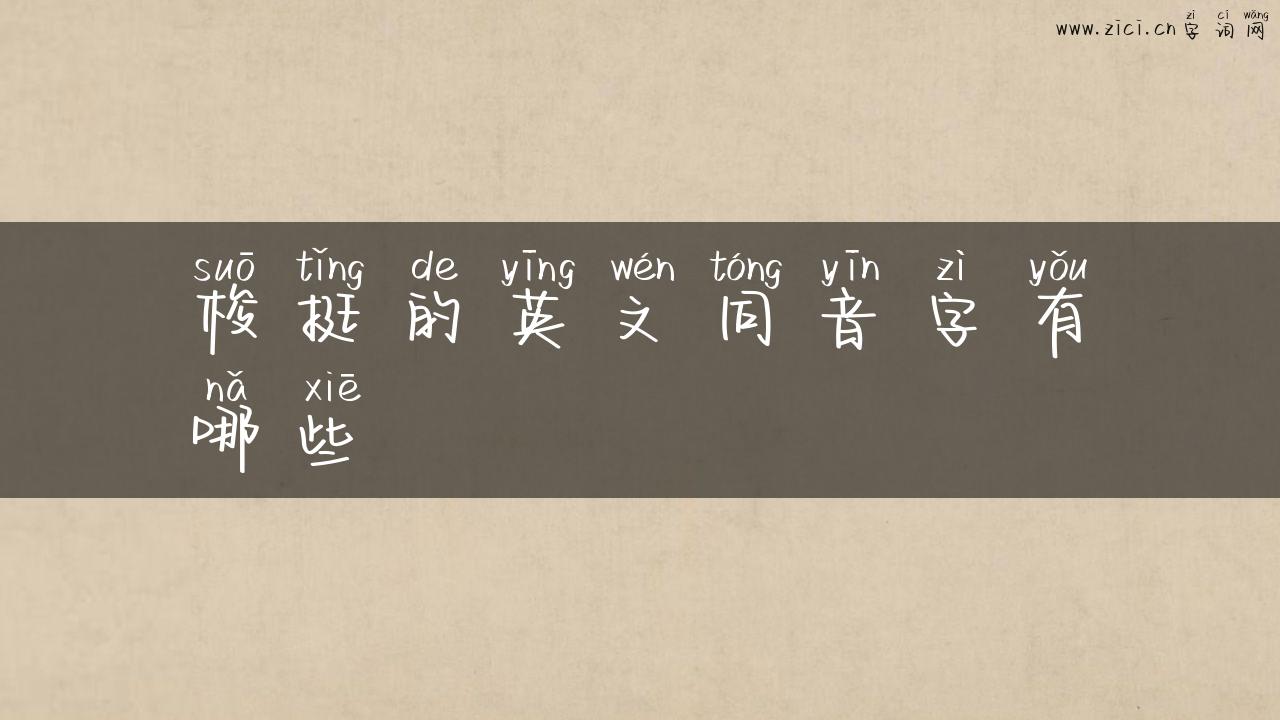 zì cí wǎng
www.zici.cn字词网
suō tǐng de yīng wén tóng yīn zì yǒu
梭挺的英文同音字有
nǎ xiē
哪些